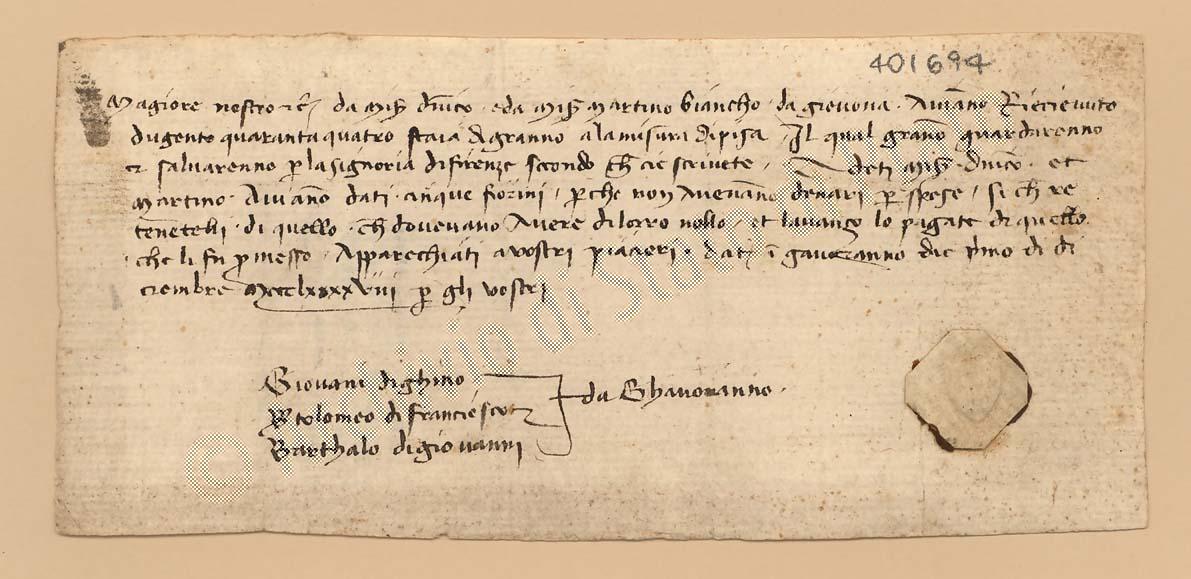 401694
Magiore nostro etc. da Mis. Domico e da Mis. Martino biancho da gienova. Aviano Riecievuto
dugento quaranta quatro staia di granno a la misura di pisa. Il qual grano guardarenno
et salvarenno per la signoria di firenze secondo che cie scrivete. deti Mis. Domico et
Martino. Aviano dati cinque fiorini, perche non Avevano denari per spese, si che re
tenetelli di quello che dovevano Avere di lorro nollo, et lavanzo lo pagate di quello
che li fu promesso. Apparechiati a vostri piacieri. dat. i gavoranno die primo di di
ciembre Mccclxxxxviii per gli vostri
Giovani di ghino
Bartolomeo di Franciescho
Barthalo di giovanni
da Ghavoranno.
© Archivio di Stato